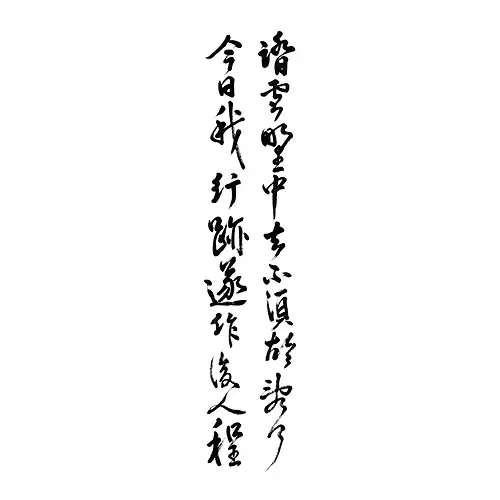 踏雪野中去不須胡亂行
今日我行跡遂作後人程